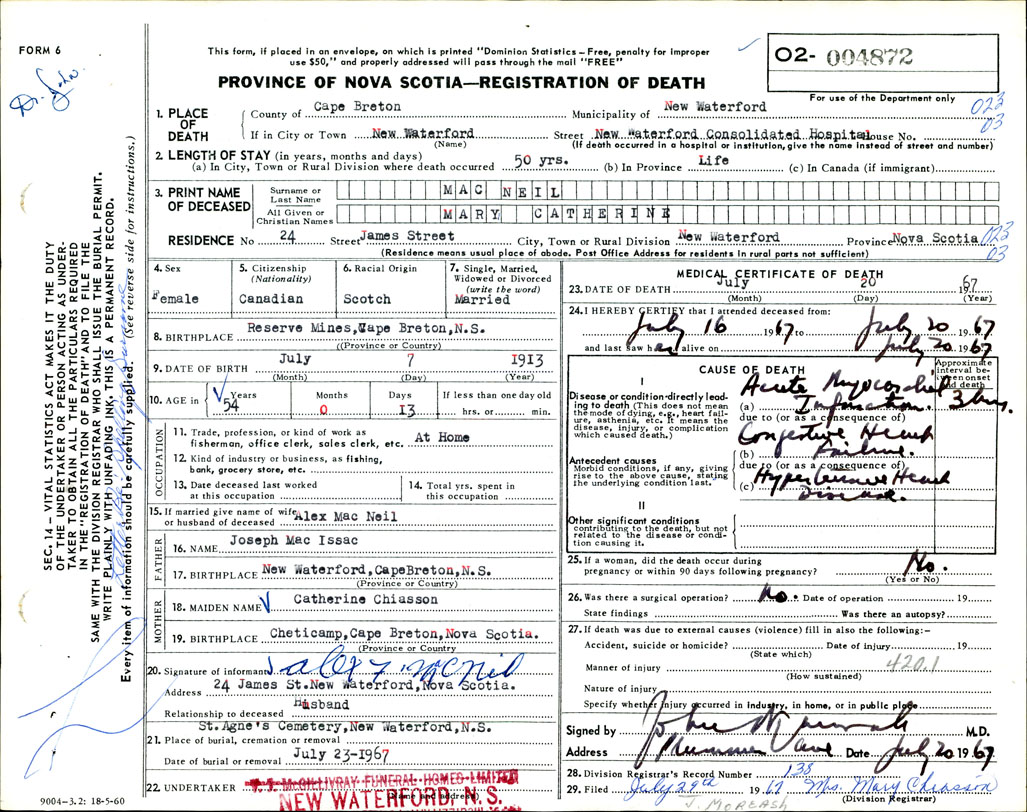 FORM 6
Dr. John
This form, if placed in an envelope, on which is printed "Dominion Statistics – Free, penalty for improper
use $50," and properly addressed will pass through the mail "FREE"
O2- 004872
For use of the Department only
PROVINCE OF NOVA SCOTIA—REGISTRATION OF DEATH
023
03
1. PLACE OF DEATH
County of Cape Breton Municipality of New Waterford
If in City or Town New Waterford Street New Waterford Consolidated Hospital House No.
(Name) (If death occurred in a hospital or institution, give the name instead of street and number)
2. LENGTH OF STAY (in years, months and days)
(a) In City, Town or Rural Division where death occurred 50 yrs. (b) In Province Life (c) In Canada (if immigrant)
3. PRINT NAME OF DECEASED
Surname or Last Name MAC NEIL
All Given or Christian Names MARY CATHERINE
RESIDENCE No 24 Street James Street City, Town or Rural Division New Waterford Province Nova Scotia 023
03
(Residence means usual place of abode. Post Office Address for residents in rural parts not sufficient)
4. Sex
Female
5. Citizenship
(Nationality)
Canadian
6. Racial Origin
Scotch
7. Single, Married,
Widowed or Divorced
(write the word)
Married
8. BIRTHPLACE Reserve Mines, Cape Breton, N.S.
((Province or Country)
9. DATE OF BIRTH July 7 1913
(Month) (Day) (Year)
10. AGE in
Years Months Days If less than one day old
54 0 13 hrs. or min.
OCCUPATION
11. Trade, profession, or kind of work as
fisherman, office clerk, sales clerk, etc. At Home
12. Kind of industry or business, as fishing,
bank, grocery store, etc.
13. Date deceased last worked
at this occupation
14. Total yrs. spent in
this occupation
15. If married give name of wife
or husband of deceased Alex Mac Neil
FATHER
16. NAME Joseph Mac Issac
17. BIRTHPLACE New Waterford,CapeBreton,N.S.
(Province or Country)
MOTHER
18. MAIDEN NAME Catherine Chiasson
19. BIRTHPLACE Cheticamp,Cape Breton,Nova Scotia.
(Province or Country)
20. Signature of informant Alex McNeil
Address 24 James St.New Waterford,Nova Scotia.
Relationship to deceased Husband
St.Agne's Cemetery,New Waterford,N.S.
21. Place of burial, cremation or removal
Date of burial or removal July 23-1967
22. UNDERTAKER T. J. McGILLIVRAY FUNERAL HOMES LIMITED
NEW WATERFORD, N. S.
MEDICAL CERTIFICATE OF DEATH
23. DATE OF DEATH July 20 1967
(Month) (Day) (Year)
24. I HEREBY CERTIFY that I attended deceased from:
July 16 1967 to July 20 1967
and last saw her alive on July 20 1967
CAUSE OF DEATH
Approximate
interval be-
tween onset
and death
I
Disease or condition directly lead-
ing to death (This does not mean
the mode of dying, e.g., heart fail-
ure, asthenia, etc. It means the
disease, injury, or complication
which caused death.)
Acute Myocardial
(a) Infarction. 3 hrs.
due to (or as a consequence of)
Congestive Heart
(b) Failure.
Antecedent causes
Morbid conditions, if any, giving
rise to the above cause, stating
the underlying condition last.
due to (or as a consequence of)
(c) Hypertensive Heart
Disease.
II
Other significant conditions
contributing to the death, but not
related to the disease or condi-
tion causing it.
25. If a woman, did the death occur during
pregnancy or within 90 days following pregnancy? No.
(Yes or No)
26. Was there a surgical operation? No. Date of operation 19
State findings Was there an autopsy?
27. If death was due to external causes (violence) fill in also the following:–
Accident, suicide or homicide? Date of injury 19
(State which)
Manner of injury 420.1
(How sustained)
Nature of injury
Specify whether injury occurred in industry, in home, or in public place
Signed by John M.D.
Address Date July 20 1967
28. Division Registrar's Record Number 138
29. Filed July 29th 1967 Mrs. Mary Chiasson
(Division Registrar)
J. MOREASH
SEC. 14 – VITAL STATISTICS ACT MAKES IT THE DUTY
OF THE UNDERTAKER OR PERSON ACTING AS UNDER-
TAKER TO OBTAIN ALL THE PARTICULARS REQUIRED
IN THE "REGISTRATION OF DEATH" AND TO FILE THE
SAME WITH THE DIVISION REGISTRAR WHO SHALL ISSUE THE BURIAL PERMIT.
WRITE PLAINLY WITH UNFADING INK, THIS IS A PERMANENT RECORD.
Every item of information should be carefully supplied. (See reverse side for instructions.)
9004-3.2: 18-5-60